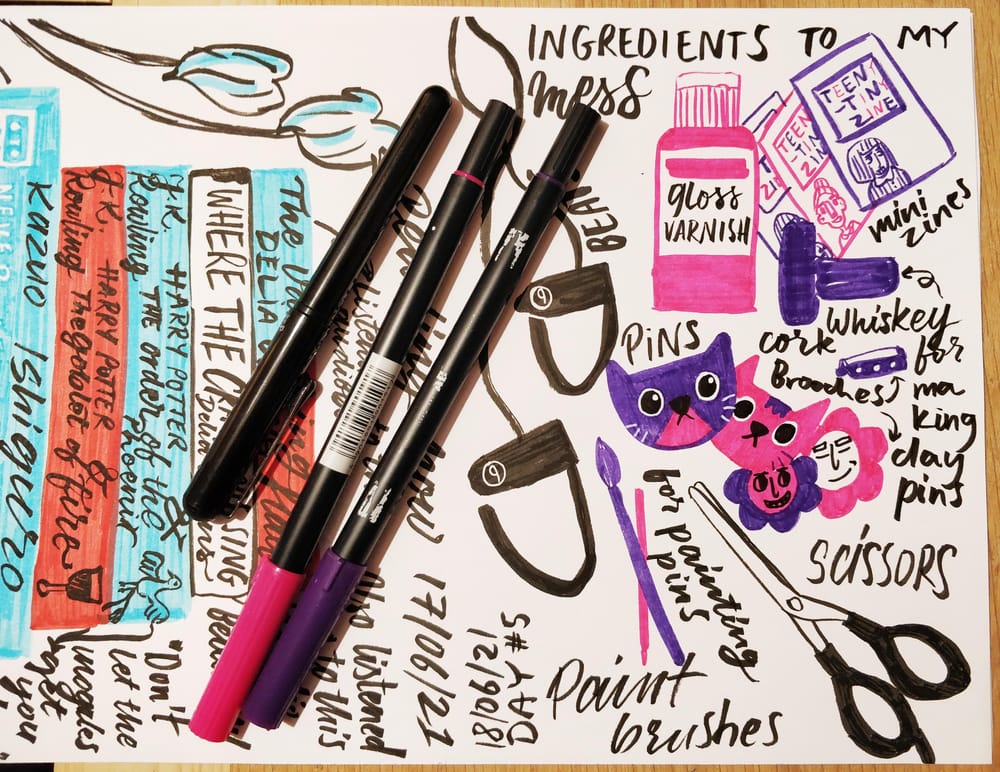 INGREDIENTS TO MY
mess
TEENY
-TINY
ZINE
TEENY
-TINY
ZINE
mini
zines
gloss
VARNISH
Whiskey
cork
for
ma
king
clay
pins
Brooches
PiNS
for painting
pins
SCISSORS
Paint
brushes
BEAN
18/06/21
DAY #5
17/06/21
Also listened
to this
The
DELIA
WHERE THE CR
SING
J.K.
Rowling
HARRY POTTER
THE order of the
Phoenix
J.K.
Rowling
HARRY POTTER
The goblet of fire
Kazuo Ishiguro
"Don't
let the
muggles
get
you